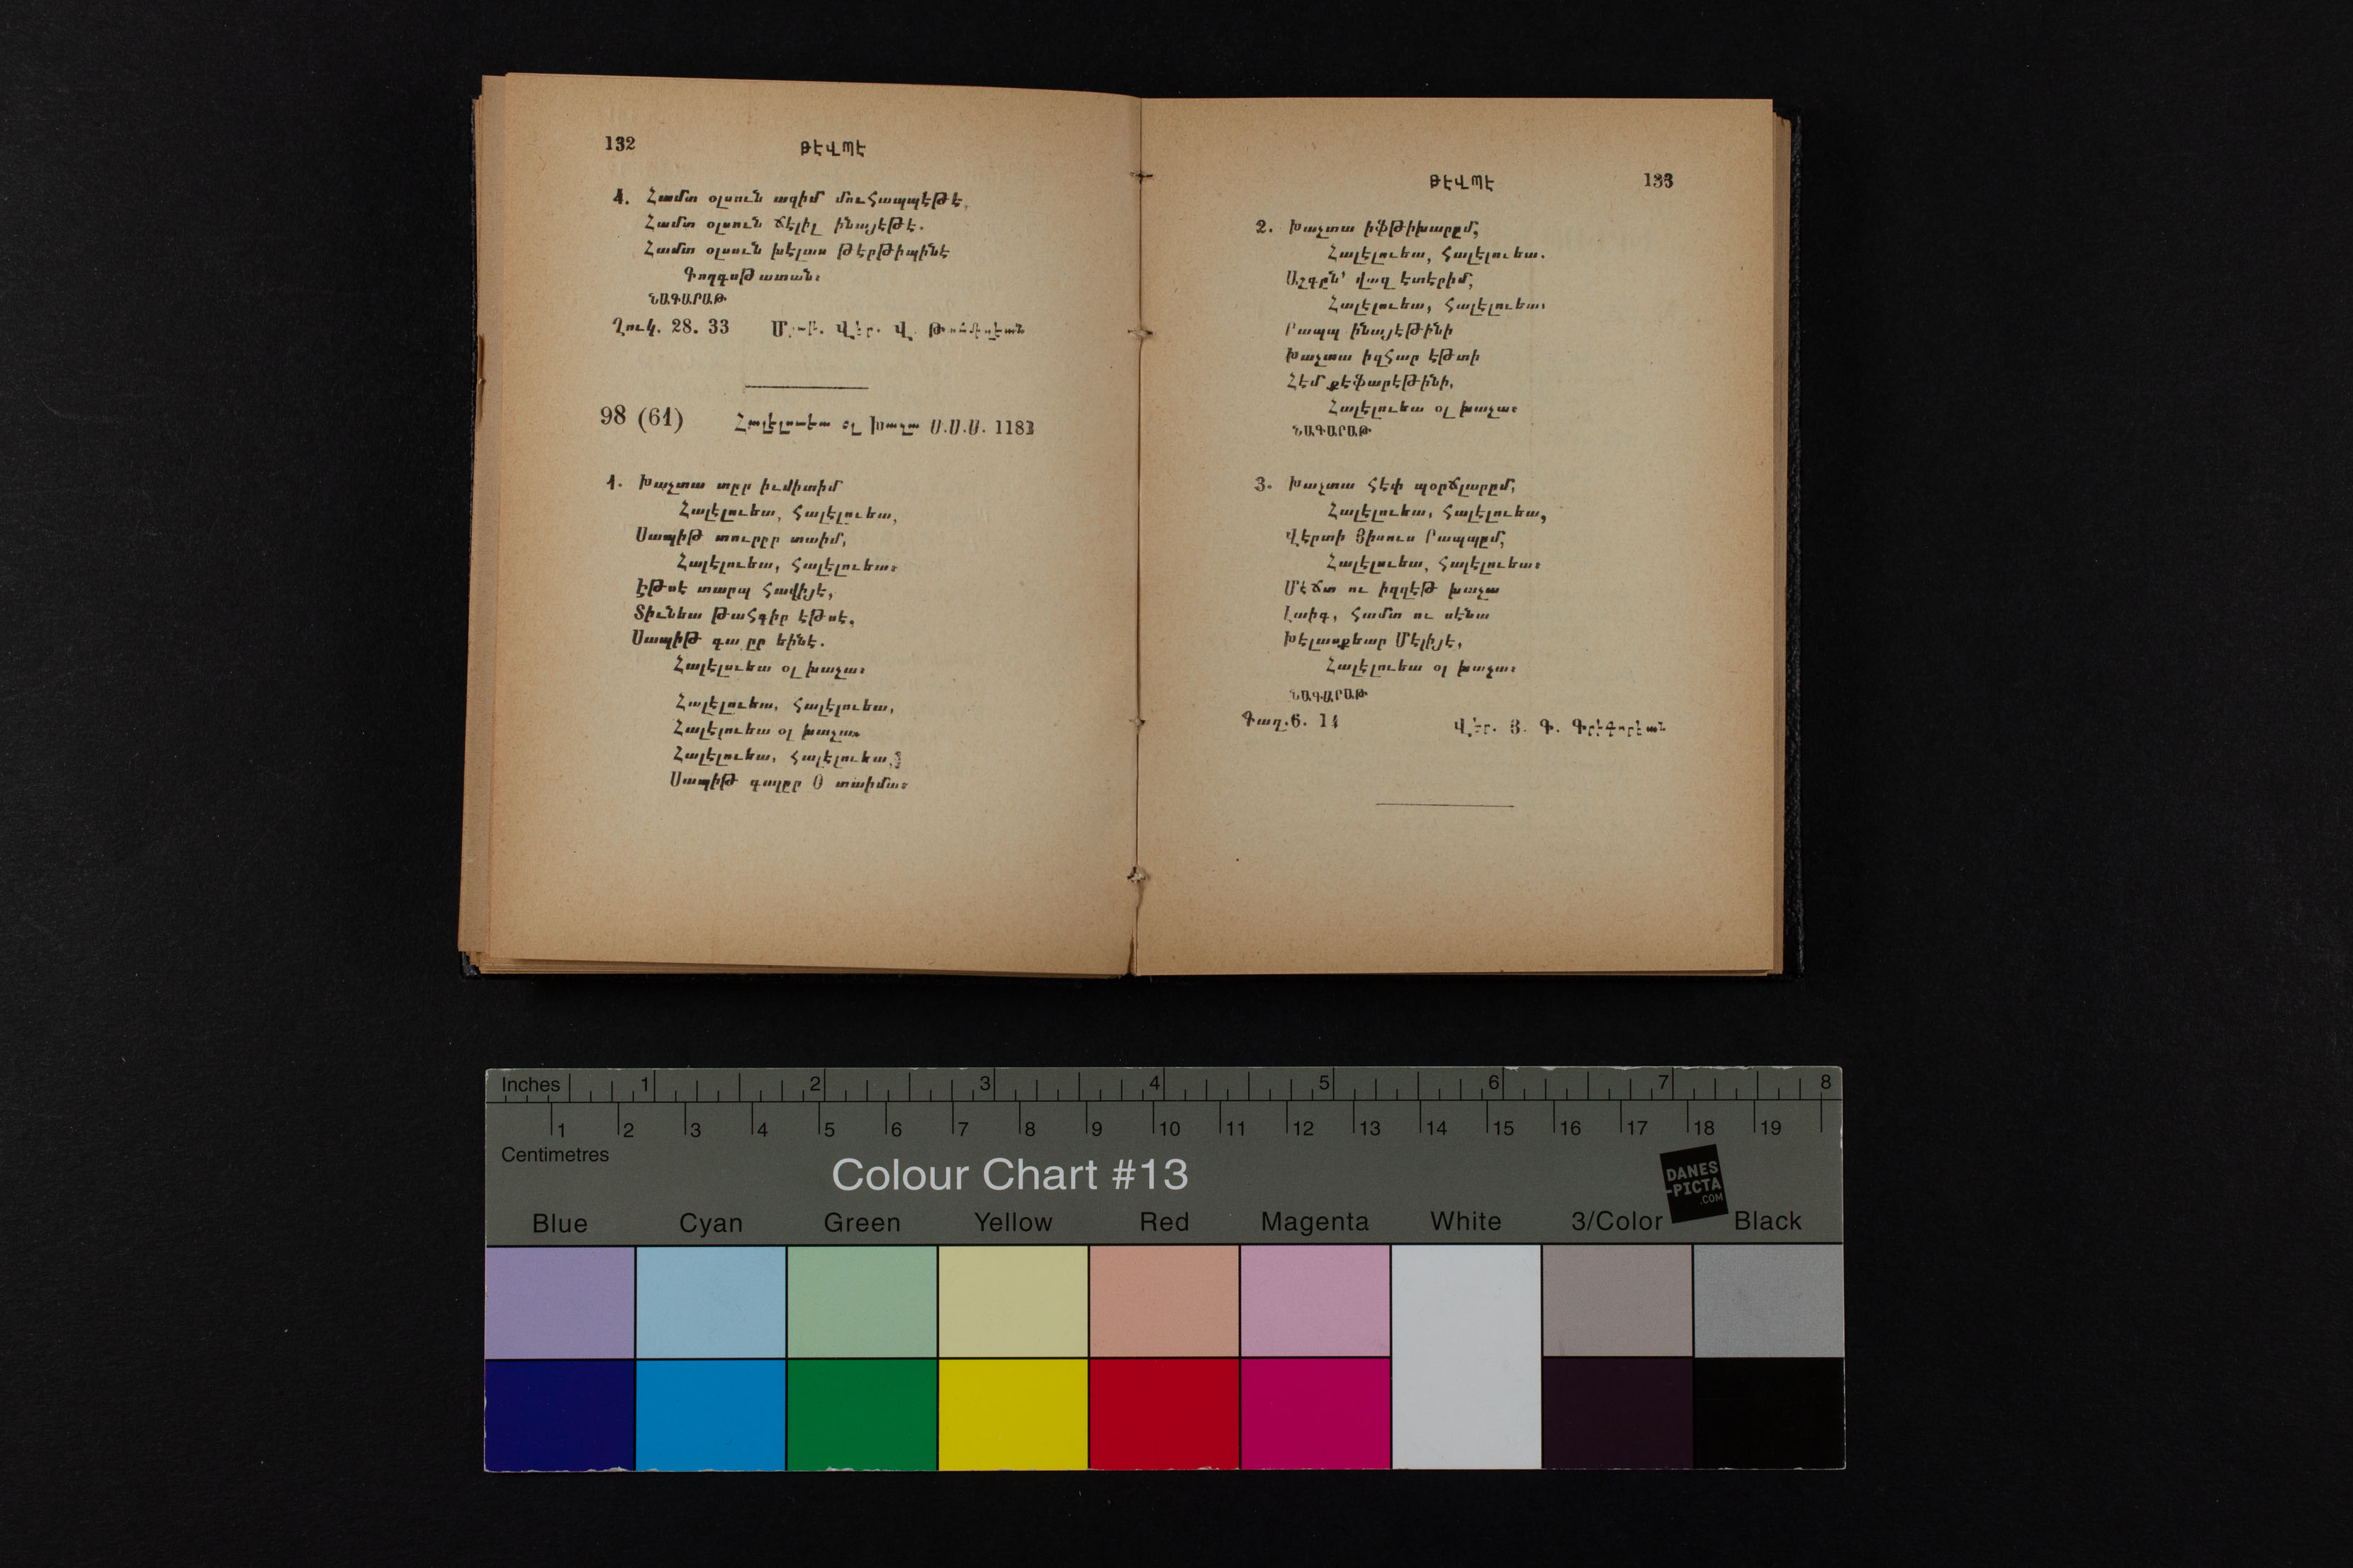 132
ԹԷՎՊԷ
4. Համտ օլսուն ազիմ մուհապպէթէ,
Համտ օլսուն ճէլիլ ինայէթէ.
Համտ օլսուն խէլաս թէրթիպինէ
Գողգոթատան։
ՆԱԳԱՐԱԹ
Ղուկ. 28. 33 Վէր. Վ.
98 (61) Հալէլուեա օլ խաչա Ս.Ս.Ս. 1183
1. Խաչտա տըր իւմիտիմ
Հալէլուեա, հալէլուեա,
Սապիթ տուրըր տաիմ,
Հալէլուեա, հալէլուեա։
Էթսէ տարպ հավիյէ,
Տիւնեա թահգիր էթսէ,
Սապիթ գալըր եինէ.
Հալէլուեա օլ խաչա։
Հալէլուեա, հալէլուեա,
Հալէլուեա օլ խաչա։
Հալէլուեա, հալէլուեա,
Սապիթ գալըր Օ տաիմա։
ԹԷՎՊԷ
133
2. Խաչտա իֆթիխարըմ,
Հալէլուեա, հալէլուեա.
Աշգըն՝ վազ էտէրիմ,
Հալէլուեա, հալէլուեա։
Րապպ ինայէթինի
Խաչտա իզհար էթտի
Հէմ քէֆարէթինի,
Հալէլուեա օլ խաչա։
ՆԱԳԱՐԱԹ
3. Խաչտա հէփ պօրճլարըմ,
Հալէլուեա, հալէլուեա,
Վէրտի Յիսուս Րապպըմ,
Հալէլուեա, հալէլուեա։
Մէճտ ու իզզէթ խաչա
Լաիգ, համտ ու սէնա
Խէլասքեար Մէլիյէ,
Հալէլուեա օլ խաչա։
ՆԱԳԱՐԱԹ
Գաղ. 6. 14 Վէր. Յ. Գ. Գրէգորէան
Inches 1 2 3 4 5 6 7 8
1 2 3 4 5 6 7 8 9 10 11 12 13 14 15 16 17 18 19
Centimetres
Colour Chart #13
DANES
-PICTA
.COM
Blue Cyan Green Yellow Red Magenta White 3/Color Black